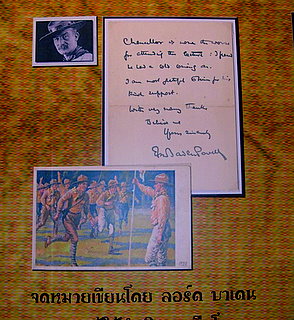 Chancellor is none the worse
for attending the
he had a cold coming on.
I am most grateful to him for his
kind support.
With very many thanks
Believe me
Yours sincerely
Baden Powell
จดหมายเขียนโดย ลอร์ด บาเดน